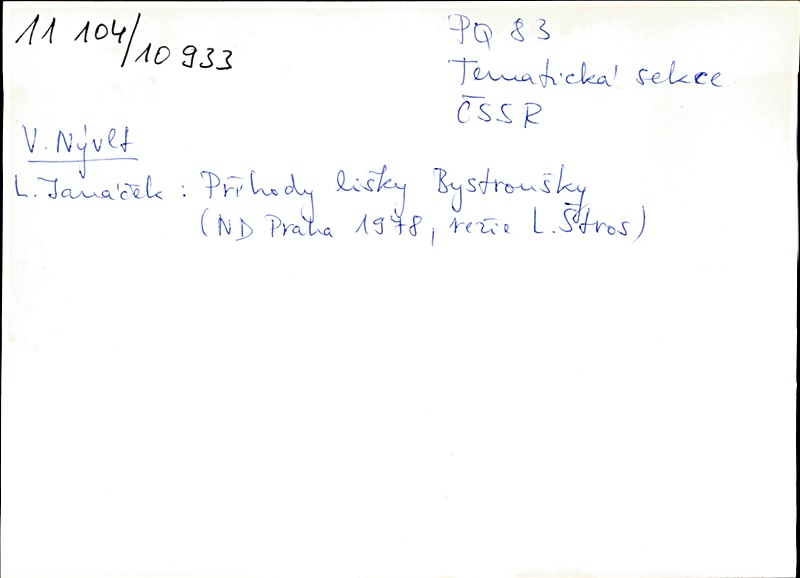 11 104/10 933
PQ 83
Tematická sekce
ČSSR
V. Nývlt
L. Janáček : Příhody lišky Bystroušky
(ND Praha 1978, režie L. Štros)